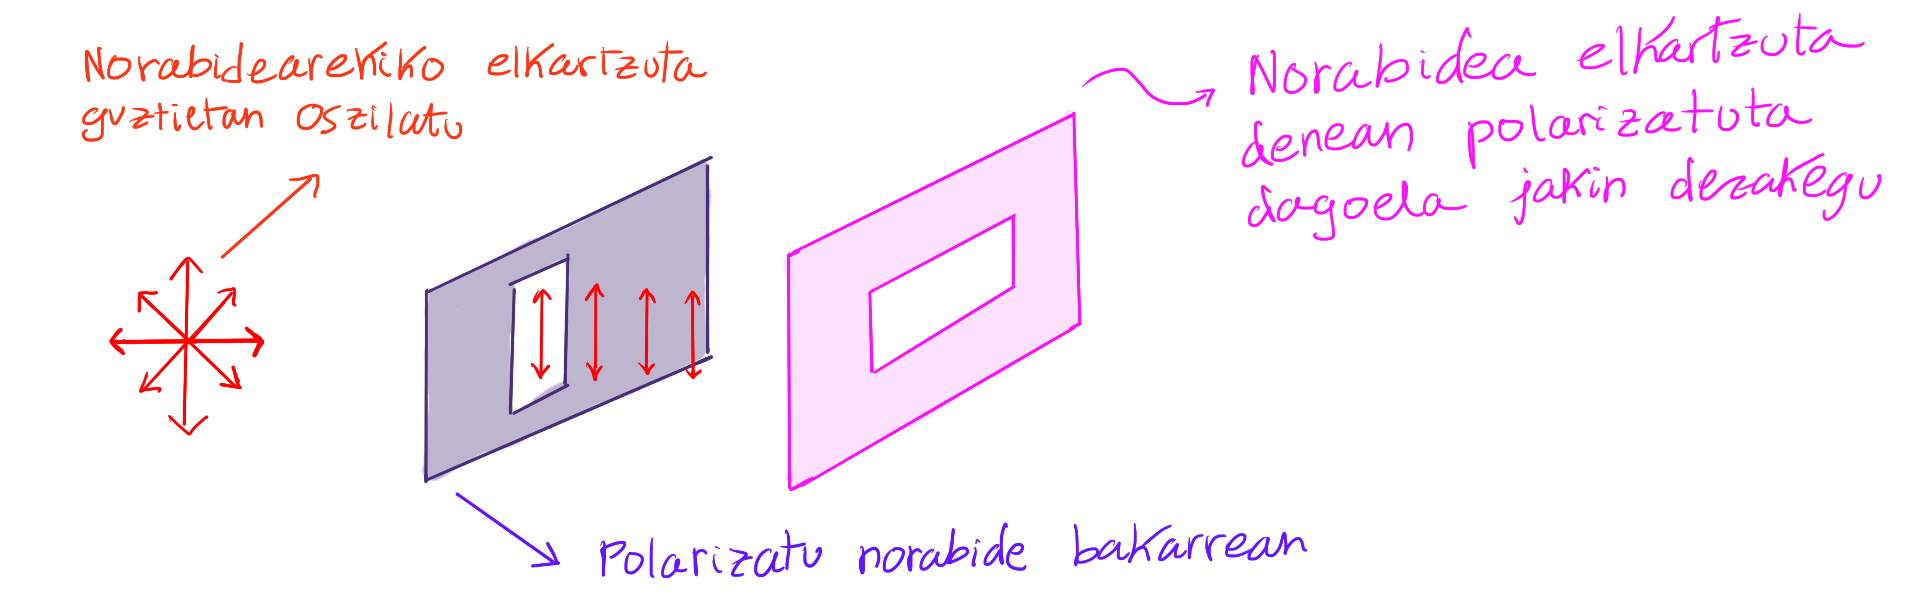 Norabidearekiko elkartzuta
guztietan oszilatu
Norabidea elkartzuta
denean polarizatuta
dagoela jakin dezakegu
Polarizatu norabide bakarrean